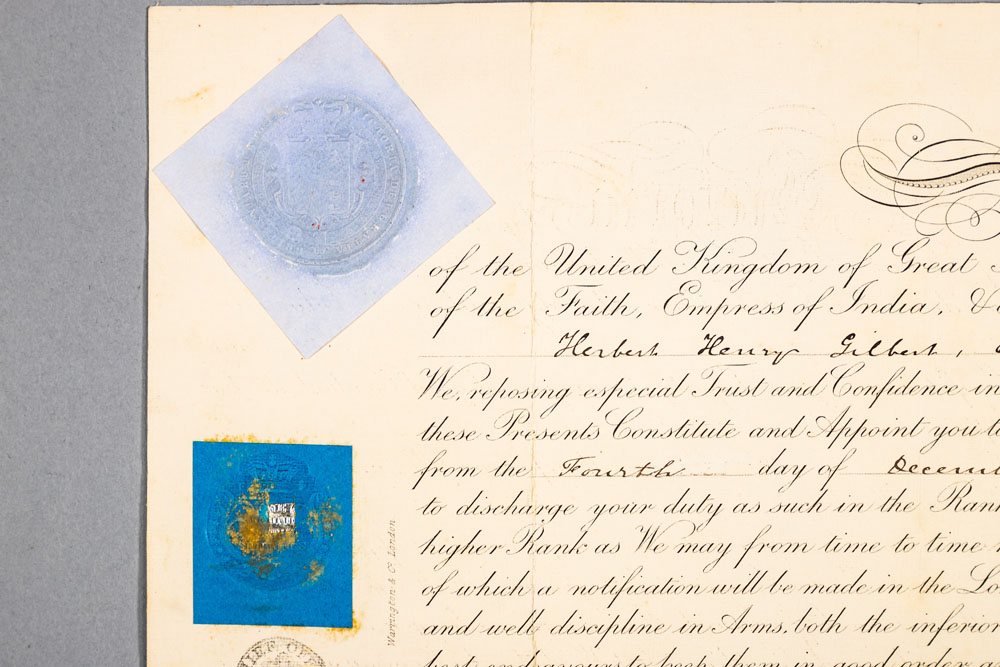 of the United Kingdom of Great
of the Faith, Empress of India, &c
Herbert Henry Gilbert,
We, reposing especial Trust and Confidence in
these Presents Constitute and Appoint you to
from the Fourth day of Decem
to discharge your duty as such in the Rank
higher Rank as We may from time to time
of which a notification will be made in the Lo
and well discipline in Arms, both the inferior
best endeavours to keep them in good order
Warrington & Co. London